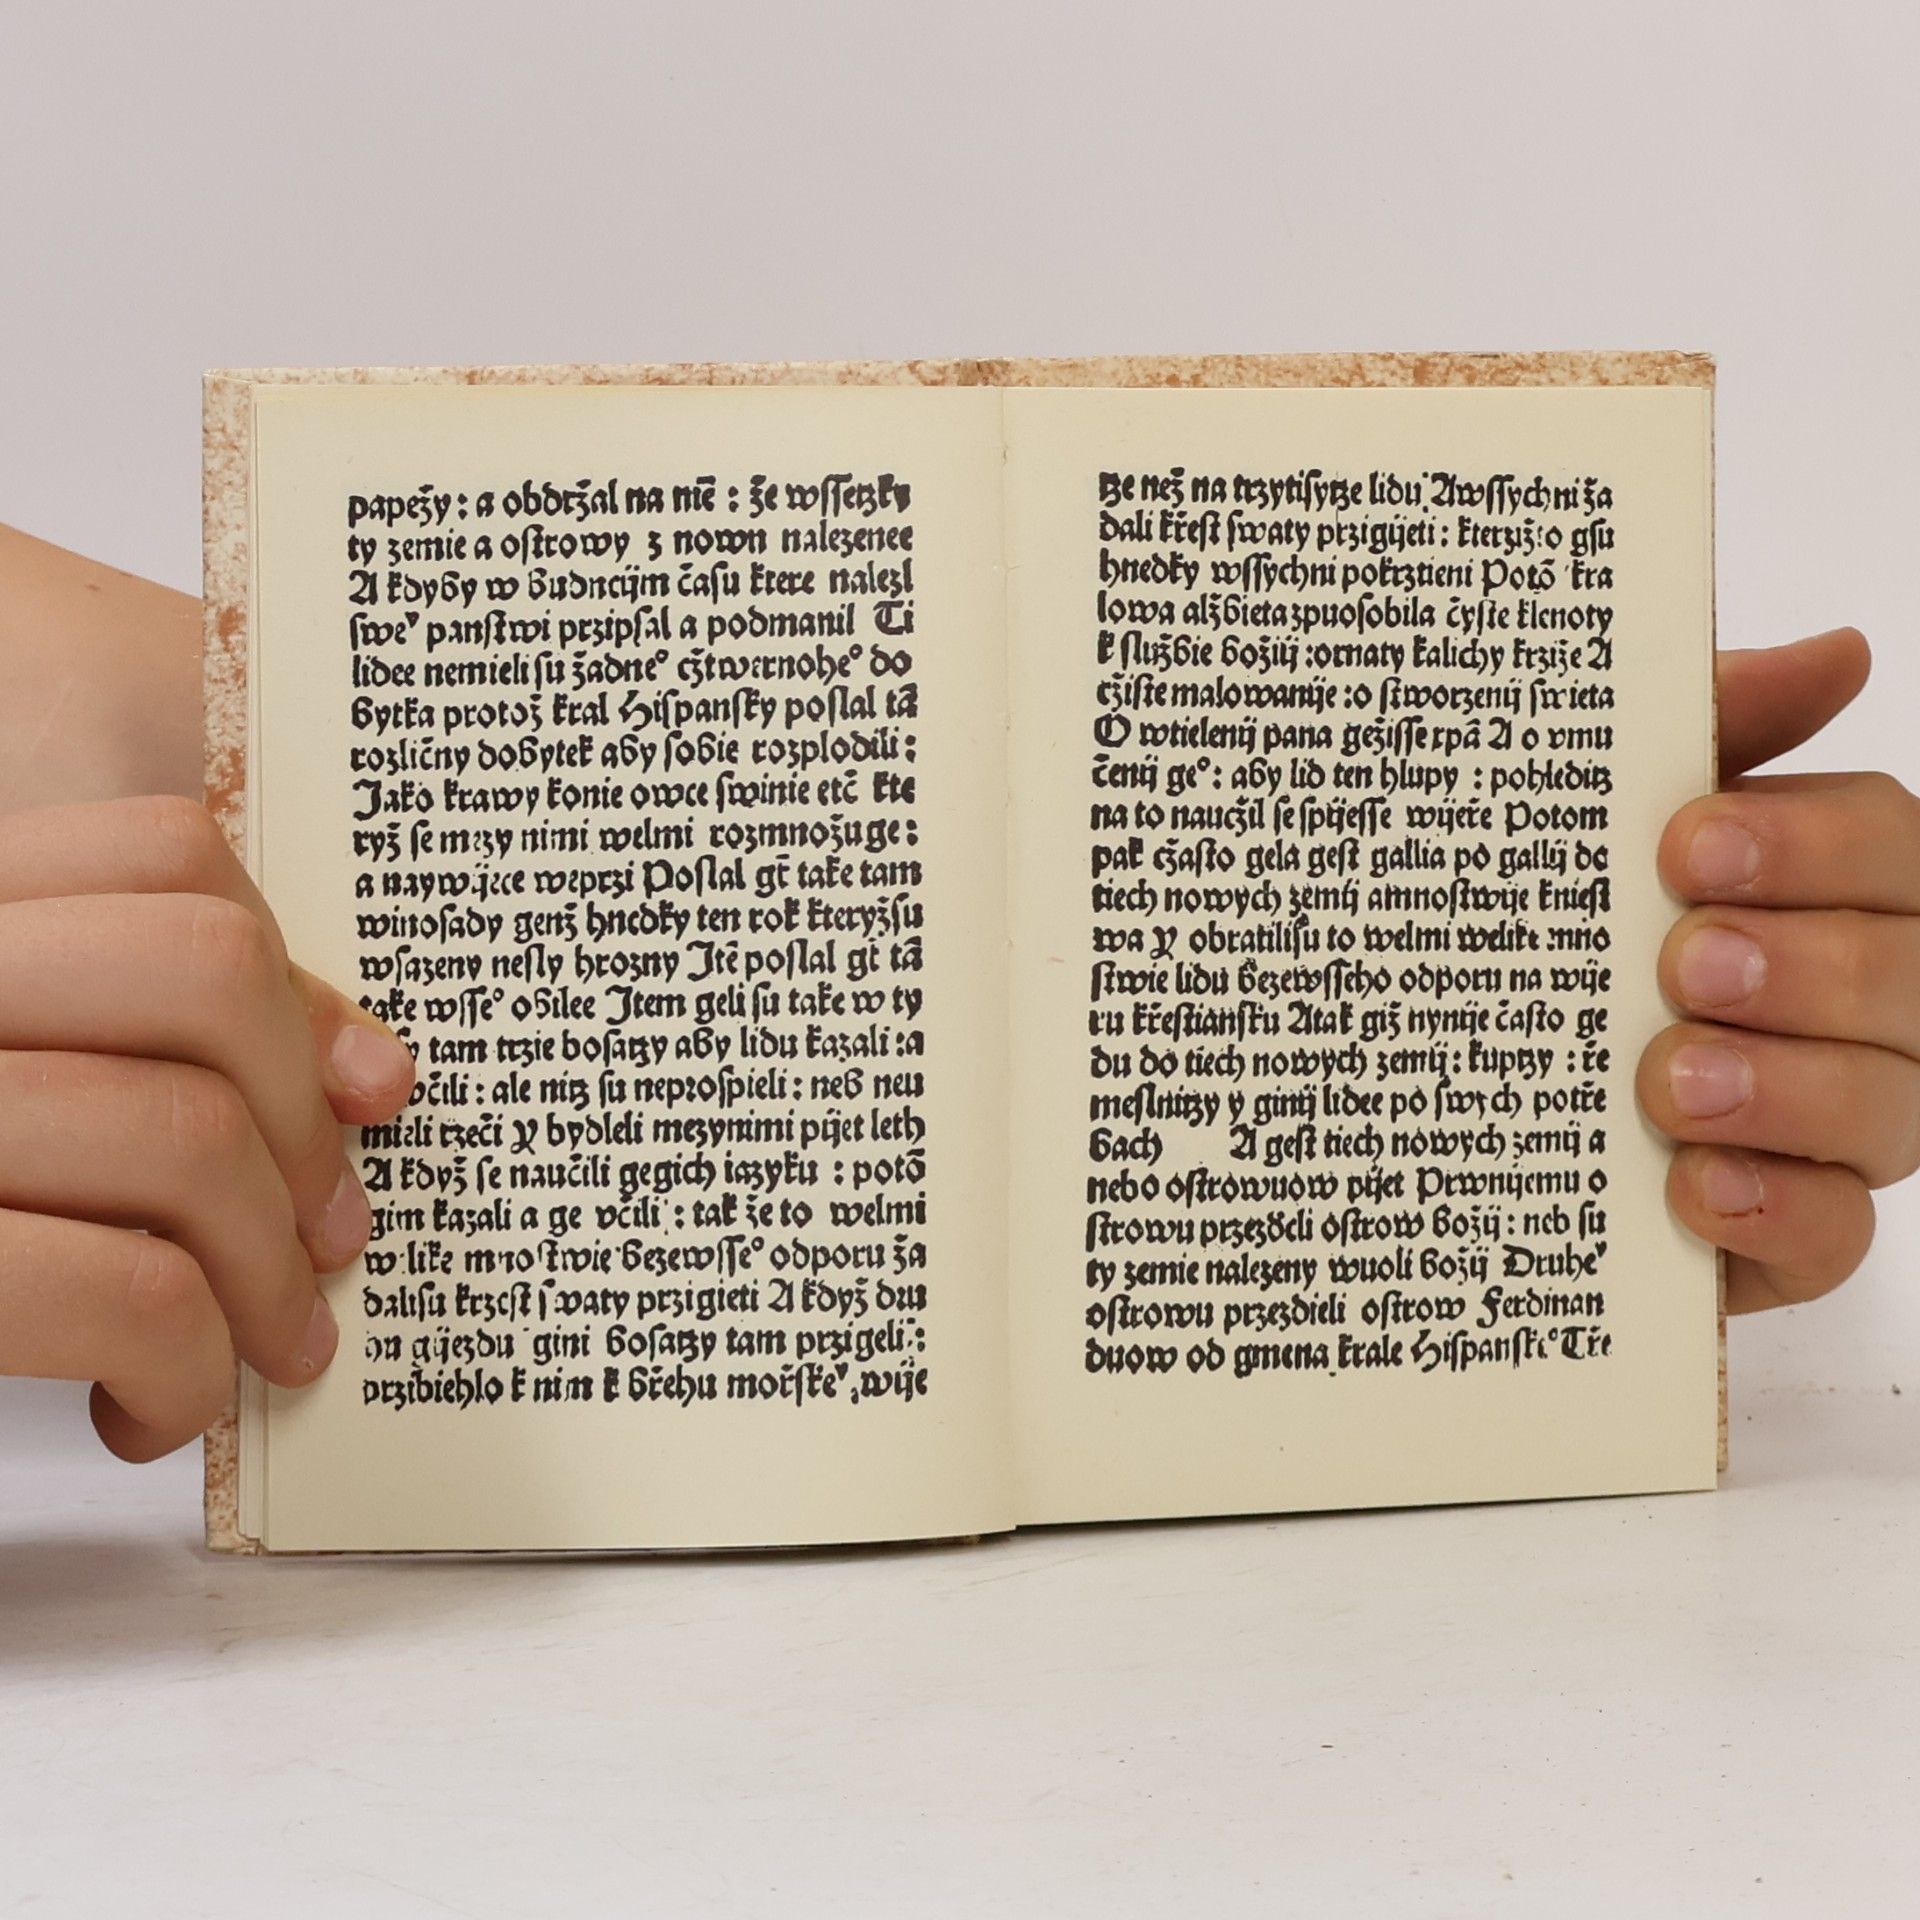 papežy : a obdržal na mē : že wssetzky
ty zemie a ostrowy z nown nalezenee
A kdyby w budncijm času ktere nalezl
sweͮ panstwi przipsal a podmanil Ti
lidee nemieli su žadne° cžtwernohe° do
bytka protož kral Hispansky poslal tā
rozličny dobytek aby sobie rozplodili :
Jako krawy konie owce swinie etc̄ kte
ryž se mezy nimi welmi rozmnožuge :
a naywijece weprzi Poslal gt̄ take tam
winosady genž hnedky ten rok kteryžsu
wsazeny nesly hrozny Jtē poslal gt̄ tā
take wsse° obilee Jtem geli su take w ty
tam trzie bosatzy aby lidu kazali : a
včili : ale nitz su neprospieli : neb neu
mieli rzeči ꝛ bydleli mezynimi pijet leth
A když se naučili gegich iazyku : potō
gim kazali a ge včili : tak že to welmi
welike mnostwie bezewsse° odporu ža
dalisu krzest swaty przigieti A když dru
hu gijezdu gini bosatzy tam przigeli :
przibiehlo k nim k břehu mořskeͮ , wije
tze než na trzytisytze lidu Awssychni ža
dali křest swaty przigijeti : kterzižto gsu
hnedky wssychni pokrztieni Potō kra
lowa alžbieta zpuosobila čyste klenoty
k službie božiij : ornaty kalichy krziže A
cžiste malowanije : o stworzenij swieta
O wtielenij pana gežisse xpā A o vmu
čenij ge° : aby lid ten hlupy : pohleditz
na to naucžil se spijesse wijeře Potom
pak cžasto gela gest gallia po gallij do
tiech nowych zemij amnostwije kniest
wa ꝛ obratilisu to welmi welike mno
stwie lidu bezewsseho odporu na wije
ru křestiansku Atak giž nynije často ge
du do tiech nowych zemij : kuptzy : ře
meslnitzy y ginij lidee po swych potře
bach A gest tiech nowych zemij a
nebo ostrowuow pijet Prwnijemu o
strowu przezdieli ostrow božij : neb su
ty zemie nalezeny wuoli božij Druheͮ
ostrowu przezdieli ostrow Ferdinan
duow od gmena krale Hispanske° Tře